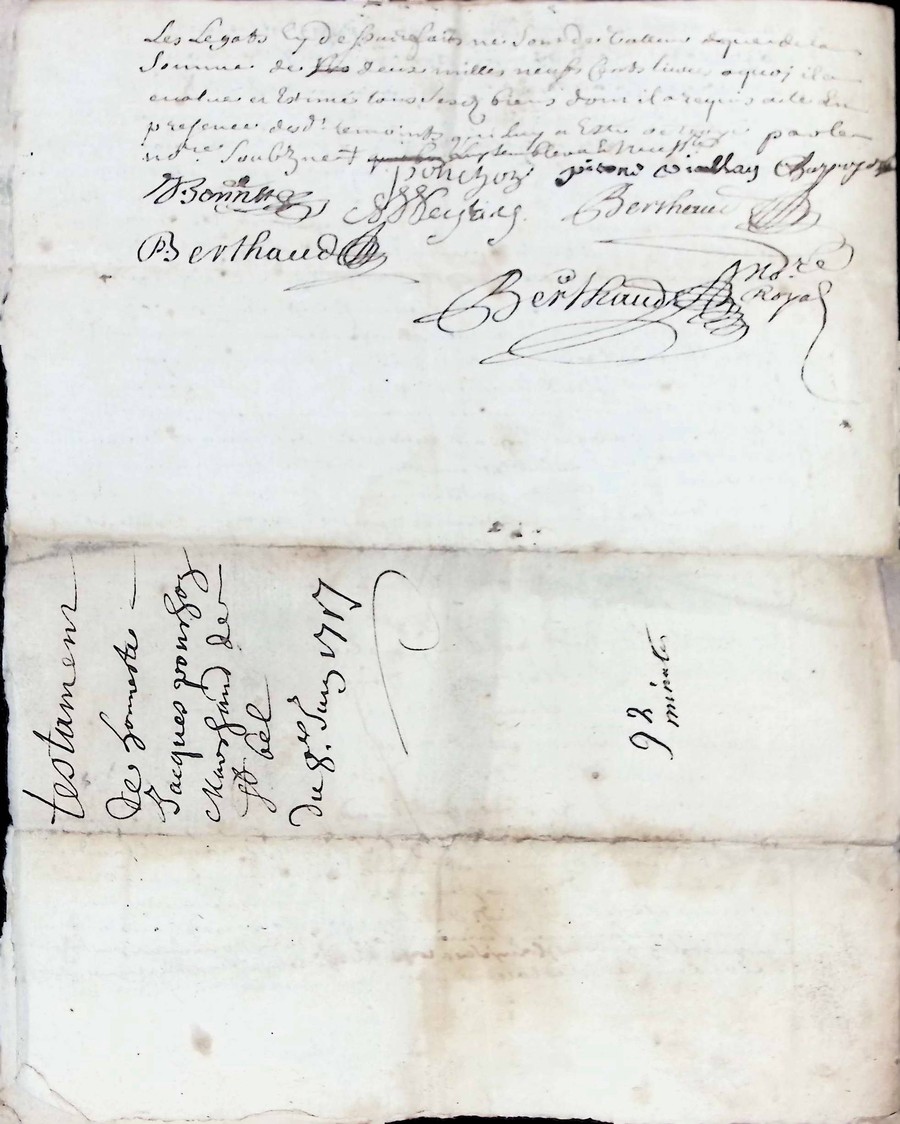 Les Legats Cy dessus faits ne sont de valleur que de la
Somme de deux milles neuf Cents livres a quoy il a
evalué et Estimé tous Sesd biens dont il a requis acte En
presence desd. temoints qui luy a Esté octroyé par le
nore. Soubzne
ponchoz pierre viallay
Bonnet Berthaud
Berthaud
Berthaud Nore
Royal
testament
de honneste
Jacques ponchoz
Marchand de
St bel
du 8e. Juin 1717
92
minute